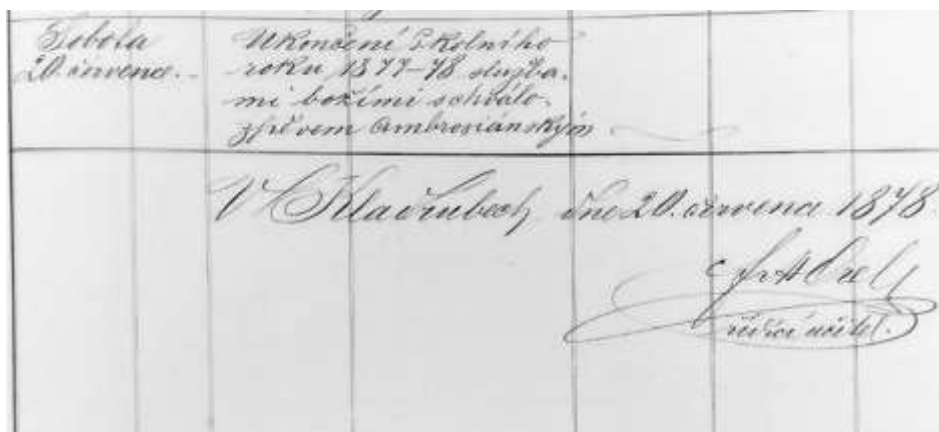 Sobota
20. července.
Ukončení školního
roku 1877-78 služba-
mi božími s chvalo-
zpěvem Ambrosiánským
V Kladrubech dne 20. července 1878.
řídící učitel.